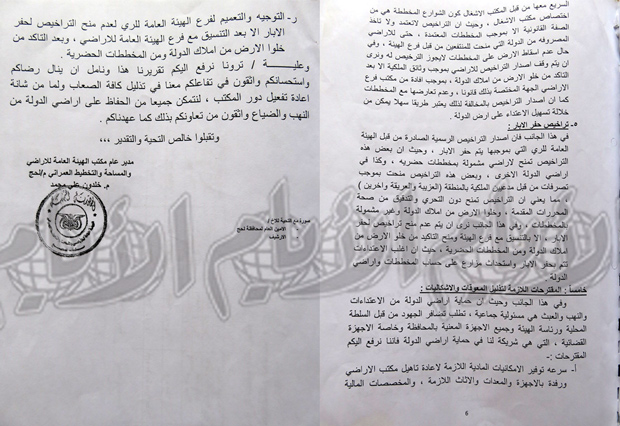 السريع معها من قبل المكتب الاشغال كون الشوارع المخططة هي من
اختصاص مكتب الاشغال ، وحيث ان التراخيص لاتعتمد ولا تاخذ
الصفة القانونية الا بموجب المخططات المعتمدة ، حتى للاراضي
المصروفه من الدولة التي منحت للمنتفعين من قبل فرع الهيئة ، وفي
حال عدم اسقاط الارض على المخططات لايجوز الترخيص له ونرى
ان يتم وقف اصدار التراخيص للاراضي بموجب وثائق الملكية الا بعد
التاكد من خلو الارض من املاك الدولة ، بموجب افادة من مكتب فرع
الاراضي الجهة المختصة بذلك قانونا ، وعدم تعارضها مع المخططات
كما ان اصدار التراخيص بالمخالفة لذلك يعتبر طريقا سهلا يمكن من
خلاله تسهيل الاعتداء على ارض الدولة .
٥- تراخيص حفر الابار :
في هذا الجانب فان أصدار التراخيص الرسمية الصادرة من قبل الهيئة
العامة للري التي بموجبها يتم حفر الابار ، وحيث ان بعض هذه
التراخيص تمنح لاراضي مشمولة بمخططات حضريه ، وكذا في
اراضي الدولة الاخرى ، وبعض هذه التراخيص منحت بموجب
تصرفات من قبل مدعيين الملكية بالمنطقة (العزيبة والعريقة واخرين )
، مما يعني ان التراخيص تمنح دون التحري والتدقيق من صحة
المحررات المقدمة ، وخلوا الارض من املاك الدولة وغير مشمولة
بالمخططات ، وفي هذا الجانب نرى ان يتم عدم منح تراخيص لحفر
الابار ، الا بالتنسيق مع فرع الهيئة ومنح التاكيد من خلو الارض من
املاك الدولة ومن المخططات الحضرية ، حيث ان اغلب الاعتداءات
تتم بحفر الابار واستحداث مزارع على حساب المخططات واراضي
الدولة .
خامسا : المقترحات اللازمة لتذليل المعوقات والاشكاليات :
وفي هذا الجانب وحيث ان حماية اراضي الدولة من الاعتداءات
والنهب والعبث هي مسئولية جماعية ، تتطلب تضافر الجهود من قبل السلطة
المحلية ورئاسة الهيئة وجميع الاجهزة المعنية بالمحافظة وخاصة الاجهزة
القضائية ، التي هي شريكة لنا في حماية اراضي الدولة فاننا نرفع اليكم
المقترحات :-
أ- سرعه توفير الامكانيات المادية اللازمة لاعادة تاهيل مكتب الاراضي
ورفدة بالاجهزة والمعدات والاثاث اللازمة ، والمخصصات المالية
6
ر- التوجيه والتعميم لفرع الهيئة العامة للري لعدم منح التراخيص لحفر
الابار الا بعد التنسيق مع فرع الهيئة العامة للاراضي ، وبعد التاكد من
خلوا الارض من املاك الدولة ومن المخططات الحضرية .
وعليـــــه / ترونا نرفع اليكم تقريرنا هذا ونامل ان ينال رضاكم
واستحسانكم واثقون في تفاعلكم معنا في تذليل كافة الصعاب ولما من شانة
اعادة تفعيل دور المكتب ، لنتمكن جميعا من الحفاظ على اراضي الدولة من
النهب والضياع واثقون من تعاونكم بذلك كما عهدناكم .
وتقبلوا خالص التحية والتقدير ،،،
مدير عام مكتب الهيئة العامة للاراضي
والمساحة والتخطيط العمراني م/لحج
م. خلدون علي محمد
صورة مع التحية للاخ /
- الامين العام لمحافظة لحج
- الارشيف